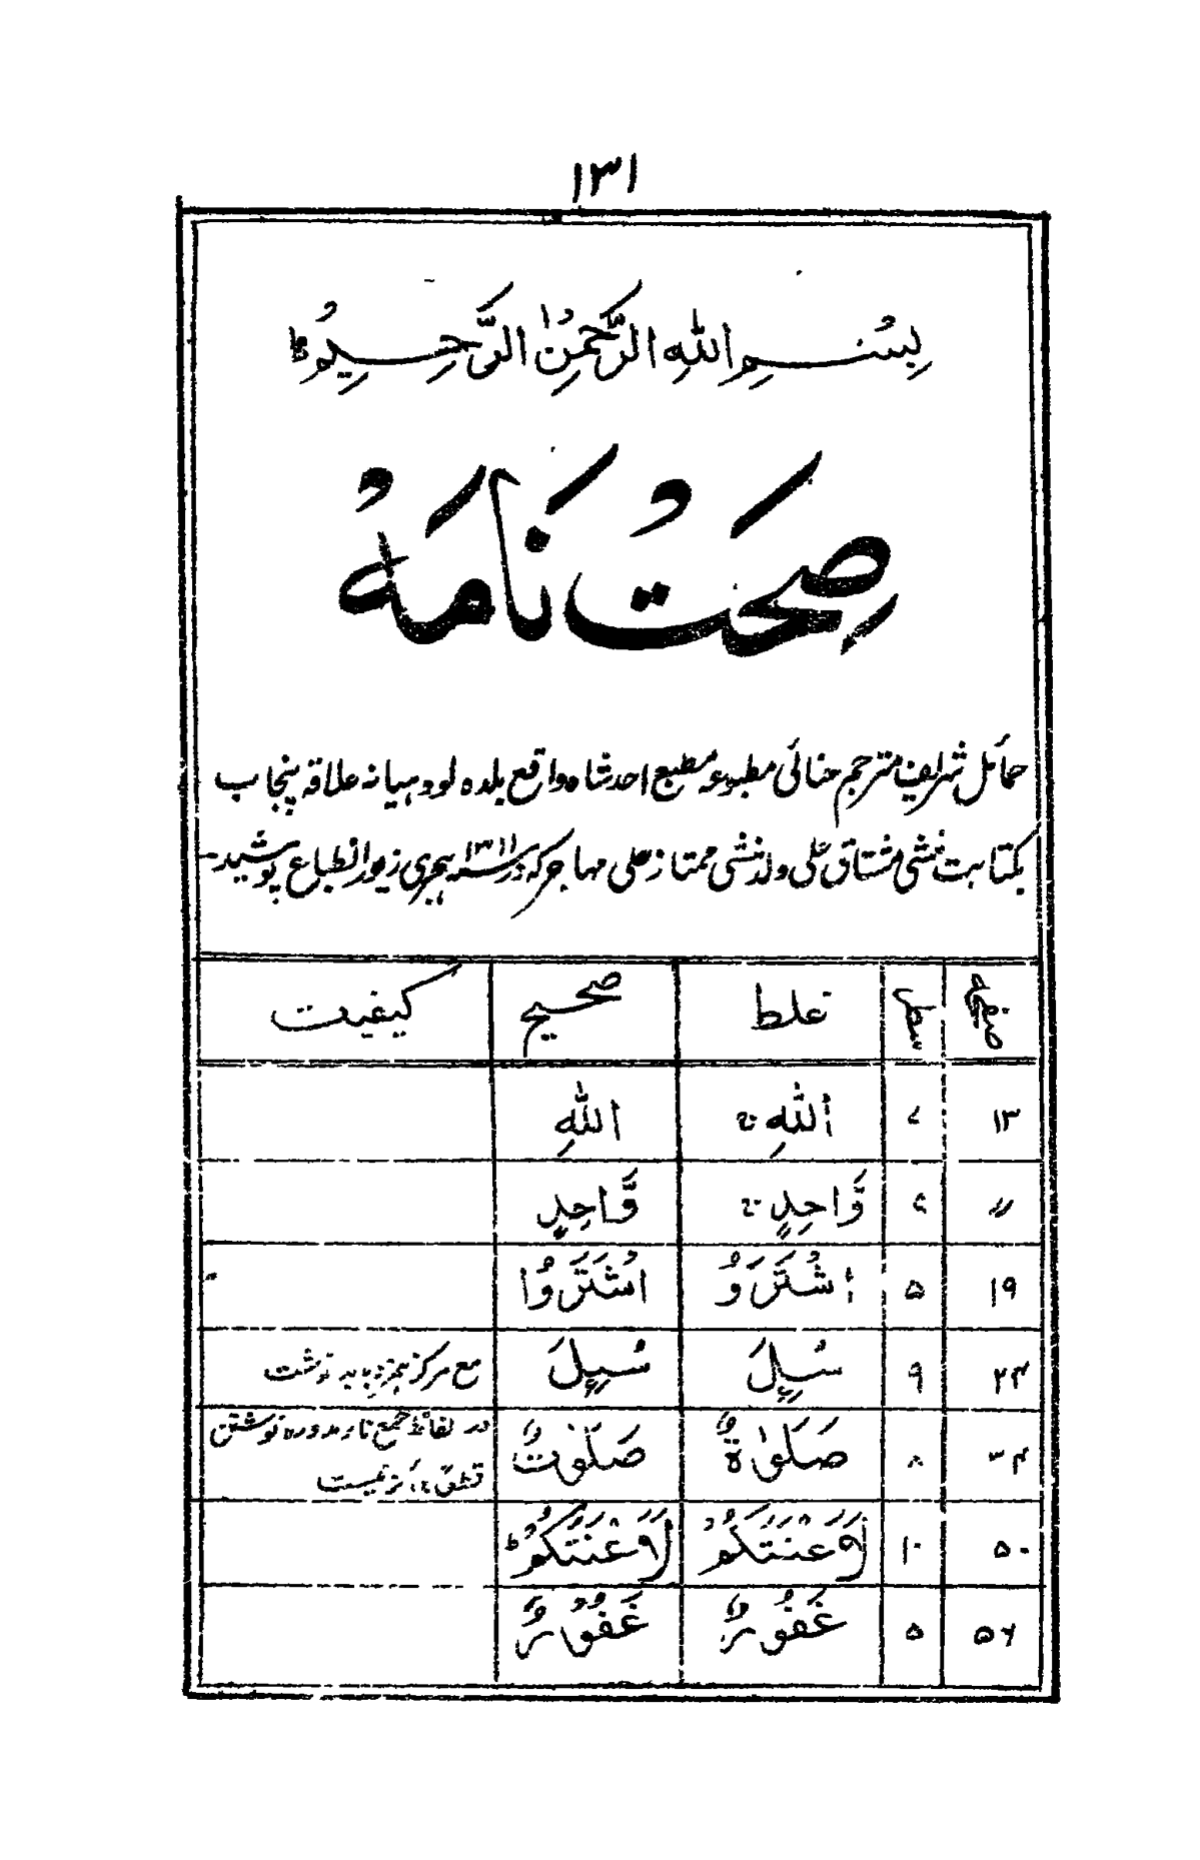 ۱۳۱
بِسْمِ اللّٰهِ الرَّحْمٰنِ الرَّحِيْمِ ط
صِحَتْ نَامَہْ
حمائل شریف مترجم حنائی مطبوعہ مطبع احد شاہ واقع بلدہ لودھیانہ علاقہ پنجاب
بکتابت منشی مشتاق علی ولد منشی ممتاز علی مہاجر کہ در ۱۳۱۱ سنہ ہجری زیور انطباع پوشید
صفحہ سطر غلط صحیح کیفیت
۱۳ ۷ اللّٰهِ ج اللّٰهِ
〃 وَّاحِدٍ ج وَّاحِدٍ
۱۹ ۵ اشْتَرَوُ اشْتَرَوُا
۲۴ ۹ سُىِٕلَ سُىِٕلَ مع مرکز ہمزہ باید نوشت
۳۴ ۸ صَلَوٰةٌ صَلَوٰتٌ در لفظ جمع تاء مدورہ نوشتن
نیست
۵۰ ۱۰ لَاَعْنَتَكُمْ لَاَعْنَتَكُمْ ط
۵۶ ۵ غَفُوْرٌ غَفُوْرٌ